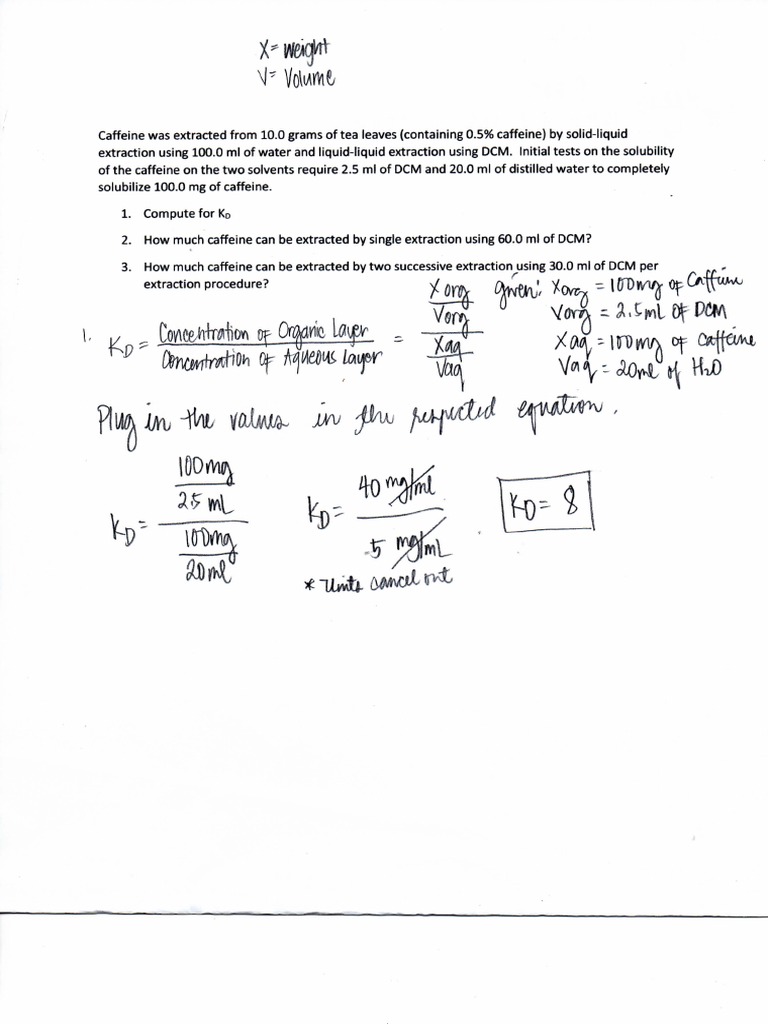 X = Weight
V = Volume
Caffeine was extracted from 10.0 grams of tea leaves (containing 0.5% caffeine) by solid-liquid
extraction using 100.0 ml of water and liquid-liquid extraction using DCM. Initial tests on the solubility
of the caffeine on the two solvents require 2.5 ml of DCM and 20.0 ml of distilled water to completely
solubilize 100.0 mg of caffeine.
1. Compute for KD
2. How much caffeine can be extracted by single extraction using 60.0 ml of DCM?
3. How much caffeine can be extracted by two successive extraction using 30.0 ml of DCM per
extraction procedure?
given: Xorg = 100mg of Caffeine
Vorg = 2.5mL of DCM
Xaq = 100mg of caffeine
Vaq = 20ml of H2O
1. KD = Concentration of Organic Layer / Concentration of Aqueous Layer = Xorg / Vorg / Xaq / Vaq
Plug in the values in the respected equation.
KD = 100mg / 2.5 mL / 100mg / 20ml
KD = 40 mg/ml / 5 mg/mL
KD = 8
* Units cancel out